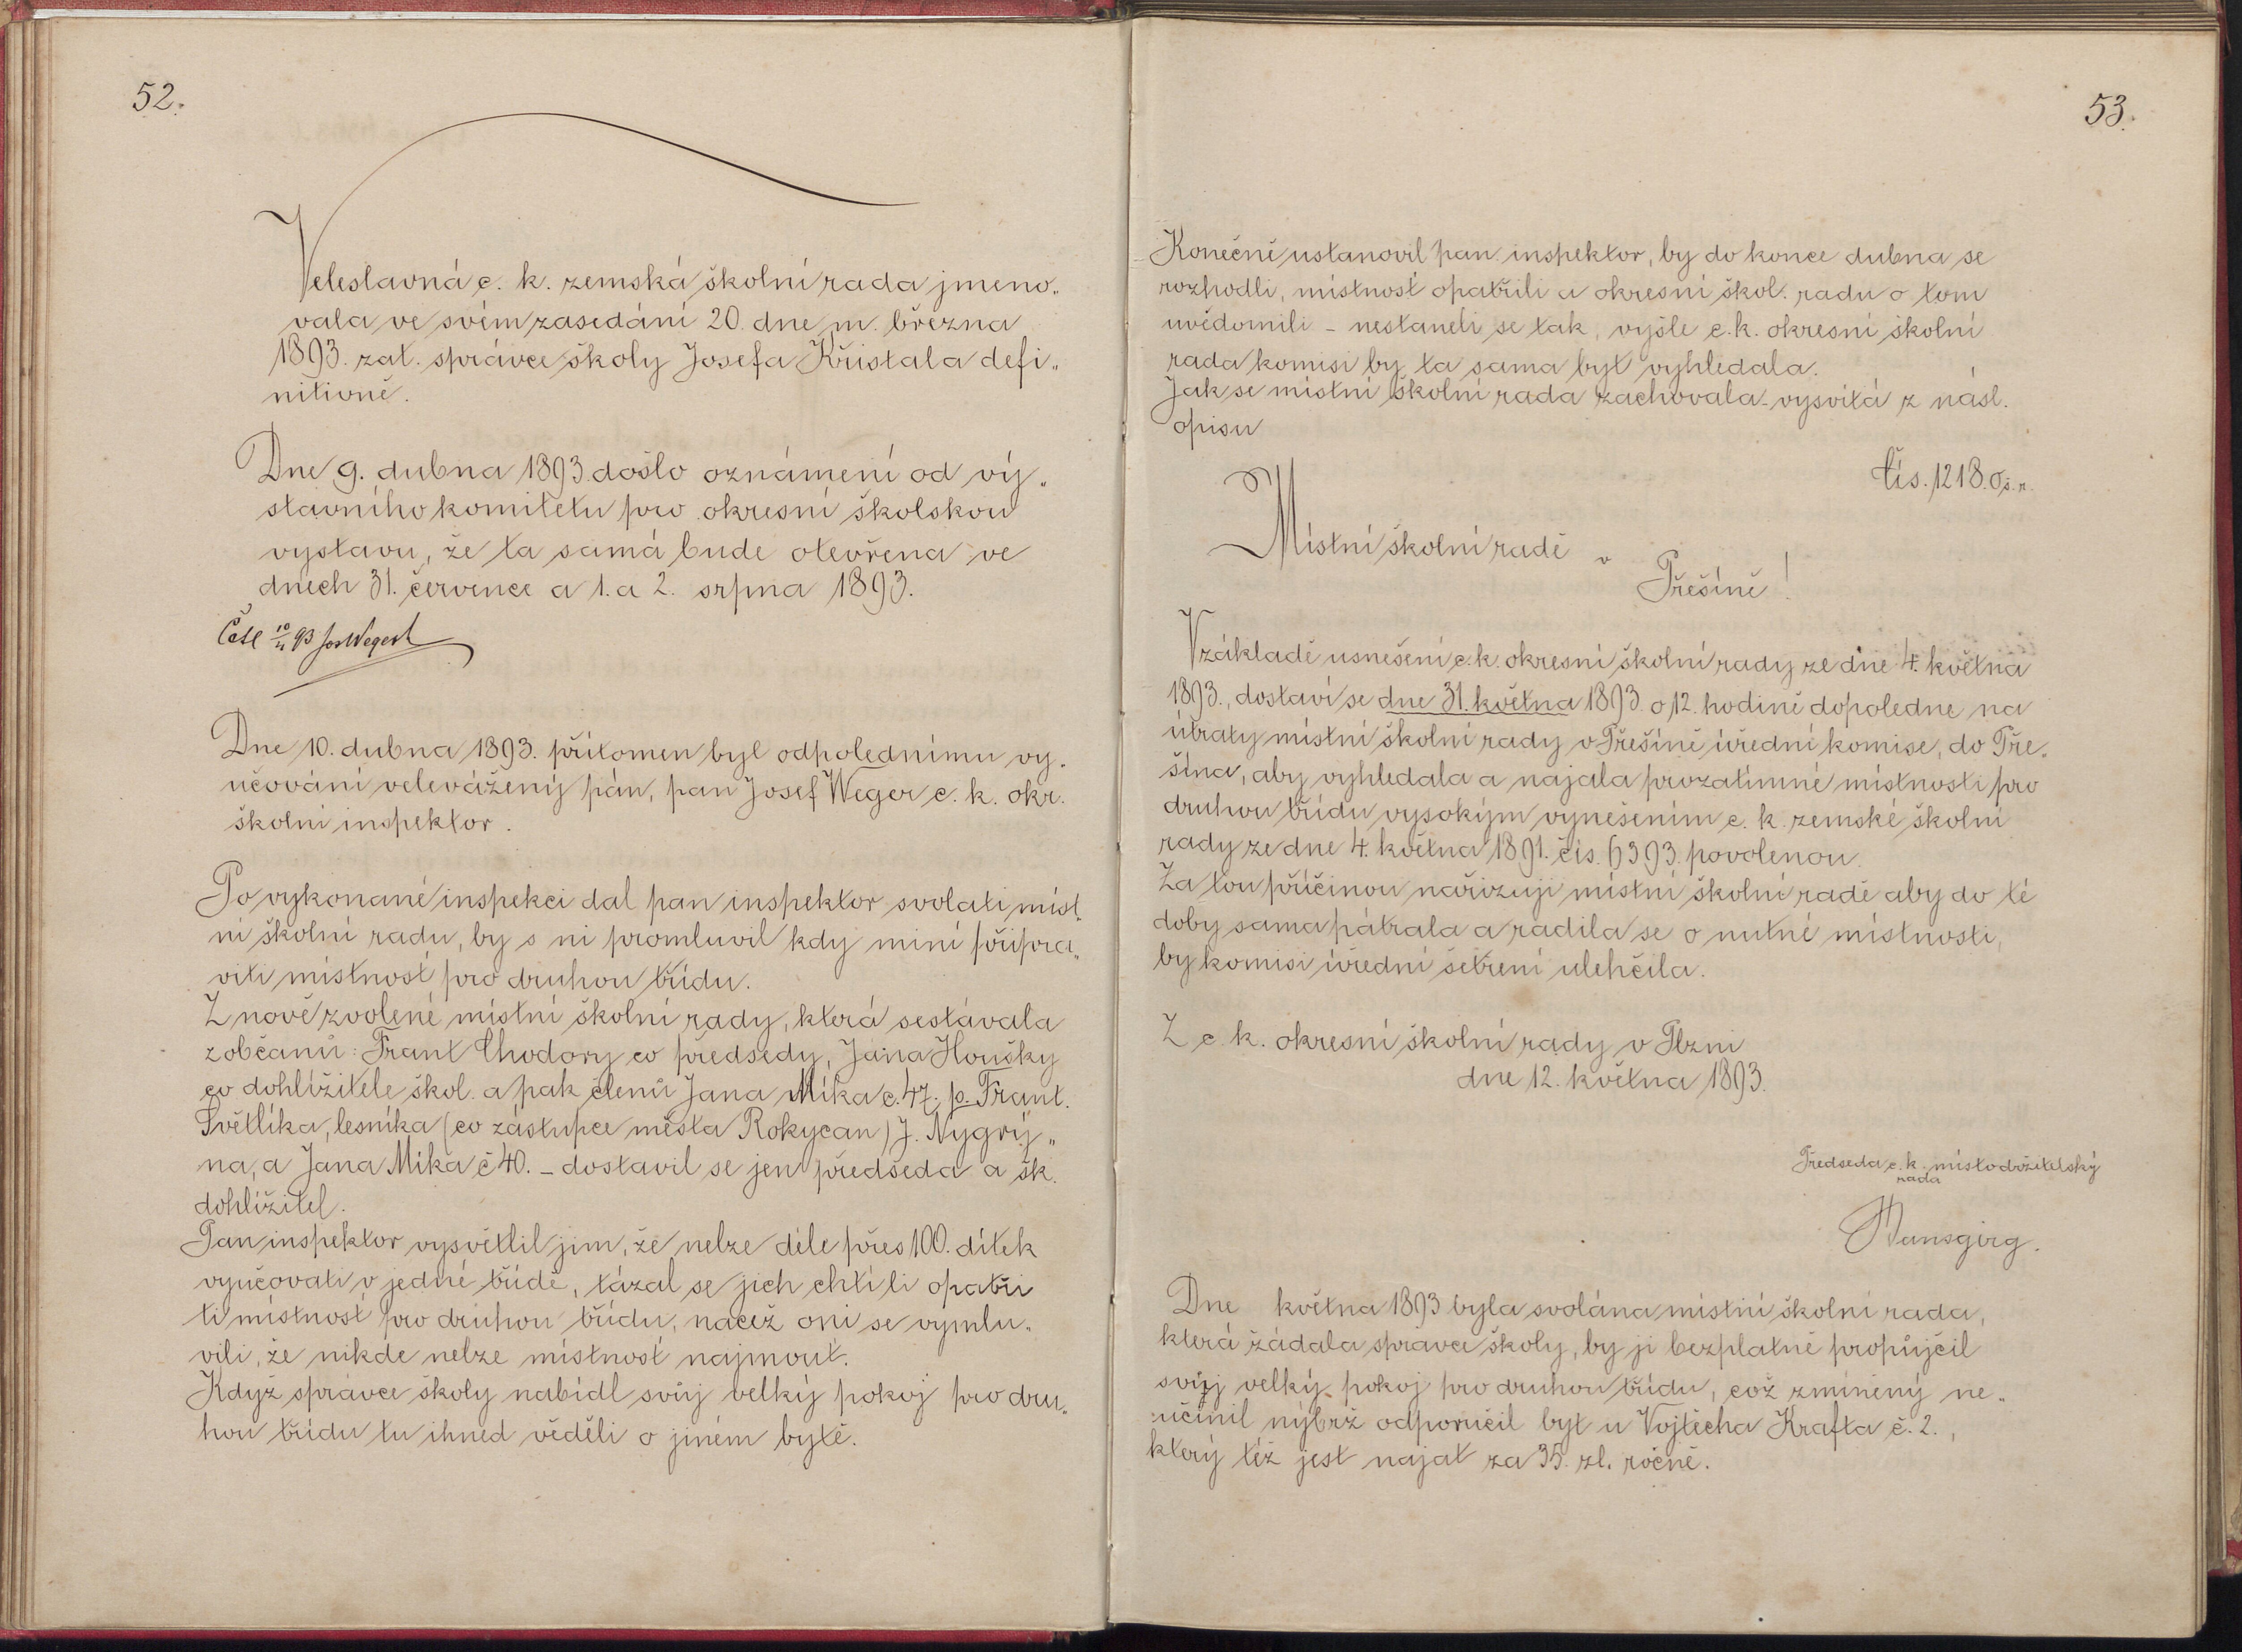 52.
Veleslavná c. k. zemská školní rada jmeno„
vala ve svém zasedání 20. dne m. března
1893. zat. správce školy Josefa Křistala defi„
nitivně.
Dne 9. dubna 1893 došlo oznámení od vý„
stavního komitétu pro okresní školskou
vystavu, že ta samá bude otevřena ve
dnech 31. července a 1. a 2. srpna 1893.
Četl 10/4 93 Jos Weger
Dne 10. dubna 1893. přítomen byl odpolednímu vy„
učování velevážený pán, pan Josef Weger c. k. okr.
školní inspektor.
Po vykonané inspekci dal pan inspektor svolati míst„
ní školní radu, by s ní promluvil kdy míní připra„
viti místnosť pro druhou třídu.
Z nově zvolené místní školní rady, která sestávala
z občanů: Frant Chodory co předsedy, Jana Houšky
co dohlížitele škol. a pak členů Jana Míka č. 47, p. Frant.
Světlíka, lesníka (co zástupce města Rokycan) J. Nygrý„
na, a Jana Míka č 40. – dostavil se jen předseda a šk.
dohlížitel.
Pan inspektor vysvětlil jim, že nelze déle přes 100. dítek
vyučovati v jedné třídě, tázal se jich chtí li opatři
ti místnosť pro druhou třídu, načež oni se vymlu„
vili, že nikde nelze místnosť najmout.
Když správce školy nabídl svůj velký pokoj pro dru„
hou třídu tu ihned věděli o jiném bytě.
53.
Konečně ustanovil pan inspektor, by do konce dubna se
rozhodli, místnosť opatřili a okresní škol. radu o tom
uvědomili – nestaneli se tak, vyšle c. k. okresní školní
rada komisi by ta sama byt vyhledala.
Jak se místní školní rada zachovala – vysvítá z násl.
opisu
Čís. 1218. O. š. r.
Místní školní radě v
Přešíně!
V základě usnešení c. k. okresní školní rady ze dne 4. května
1893., dostaví se dne 31. května 1893. o 12. hodině dopoledne na
útraty místní školní rady v Přešíně úřední komise, do Pře„
šína, aby vyhledala a najala prozatímné místnosti pro
druhou třídu vysokým vynešením c. k. zemské školní
rady ze dne 4. května 1891. čís. 6393. povolenou.
Za tou příčinou nařizuji místní školní radě aby do té
doby sama pátrala a radila se o nutné místnosti,
by komisi úřední šetření ulehčila.
Z c. k. okresní školní rady v Plzni
dne 12. května 1893.
Předseda c. k. místodržitelský
rada
Hansgirg.
Dne května 1893 byla svolána místní školní rada,
která žádala správce školy, by ji bezplatně propůjčil
svůj velký pokoj pro druhou třídu, což zmíněný ne„
učinil nýbrž odporučil byt u Vojtěcha Krafta č. 2.,
který též jest najat za 35. zl. ročně.